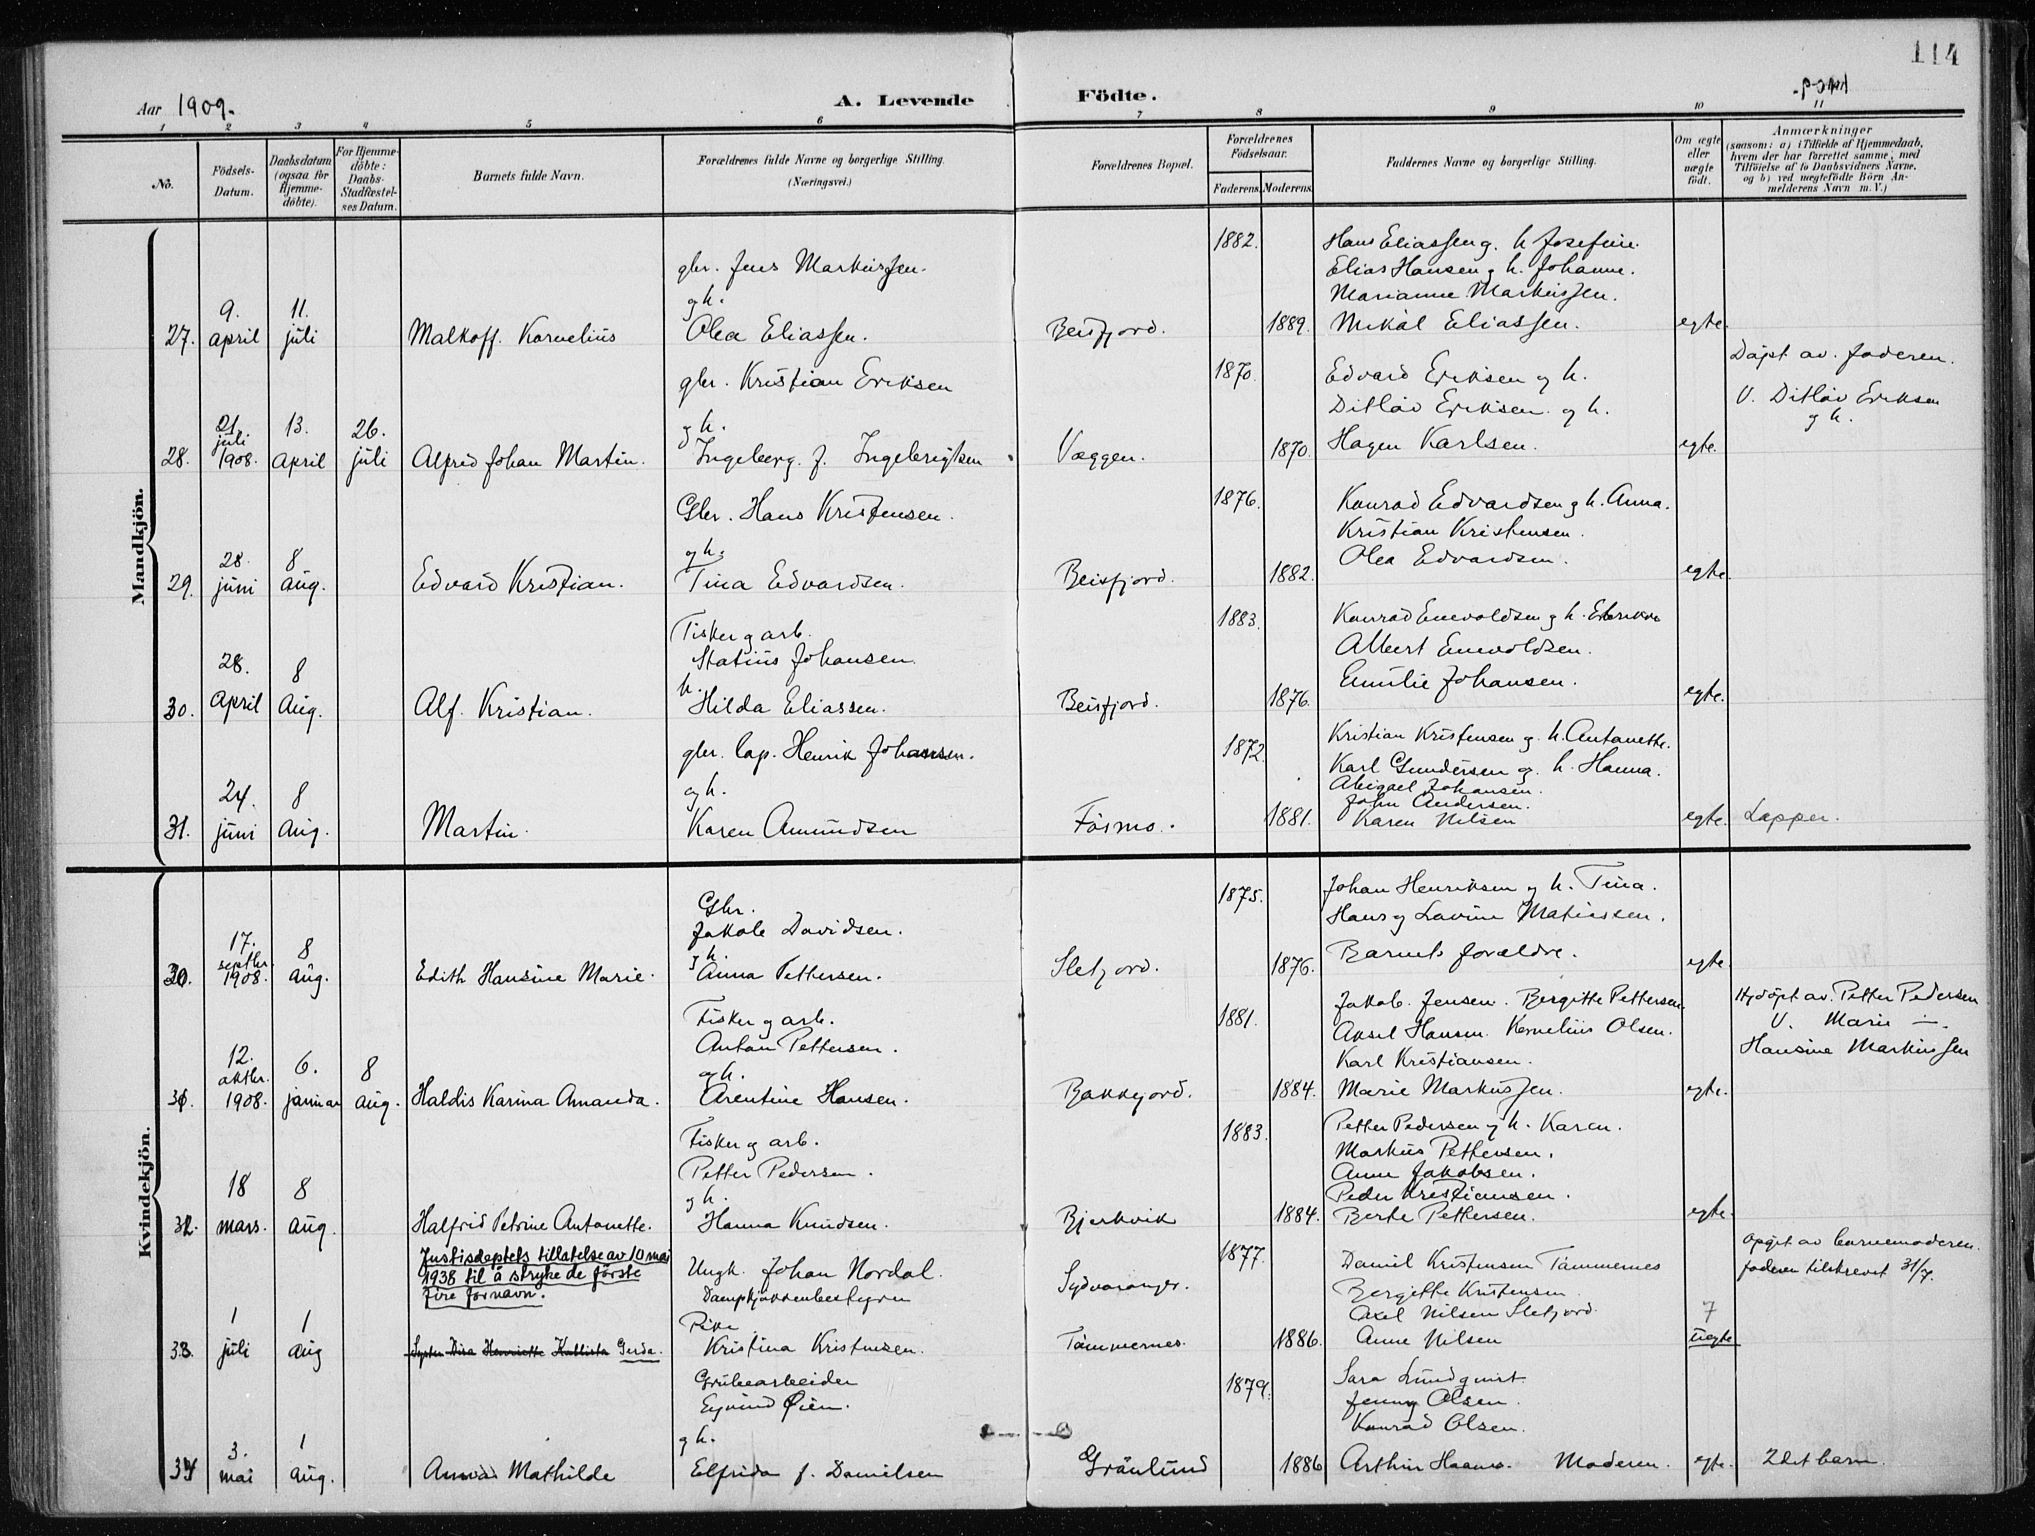 114
Aar 1909.
A. Levende Födte.
1909.
1 2 3 4 5 6 7 8 9 10 11
No.
Födsels-Datum.
Daabsdatum (ogsaa for Hjemme-döbte).
For Hjemme-döbte: Daabs-Stadfæstel-ses Datum.
Barnets fulde Navn.
Forældrenes fulde Navne og borgerlige Stilling. (Næringsvei.)
Forældrenes Bopæl.
Forældrenes Födselsaar.
Faderens. Moderens.
Faddernes Navne og borgerlige Stilling.
Om ægte eller uægte födt.
Anmærkninger
(saasom: a) i Tilfælde af Hjemmedaab, hvem der har forrettet samme, med Tilföielse af to Daabsvidners Navne, og b) ved uægtefödte Börn An-melderens Navn m. V.)
Mandkjön.
27. 9. april 11. juli Malkoff Kornelius
gbr. Jens Markussen.
og h.
Olea Eliassen.
Beisfjord. 1882. 1889.
Hans Eliassen og h. Josefine
Elias Hansen og h. Johanne.
Marianne Markussen.
Mikal Eliassen.
egte.
28. 21. juli 1908. 13. April 26. juli Alfred Johan Martin.
gbr. Kristian Eriksen
og h.
Ingeberg. f. Ingebrigtsen
Væggen. 1870. 1870.
Edvard Eriksen og h.
Ditløv Eriksen og h.
Hagen Karlsen.
egte.
Døpt av faderen.
V. Ditløv Eriksen
og h.
29. 28. juni 8 Aug. Edvard Kristian.
Gbr. Hans Kristensen.
og h.
Tina Edvardsen.
Beisfjord. 1876. 1882.
Konrad Edvardsen og h. Anna.
Kristian Kristensen.
Olea Edvardsen.
egte.
30. 28. April 8 Aug. Alf. Kristian.
Fisker og arb.
Statius Johansen
h.
Hilda Eliassen.
Beisfjord. 1883. 1876.
Konrad Enevoldsen og h.
Albert Enevoldsen.
Emilie Johansen.
egte.
31. 24. juni 8 Aug. Martin.
gbr. Lap. Henrik Johansen.
og h.
Karen Amundsen
Fosmo. 1872. 1881.
Kristian Kristensen og h. Antonette.
Karl Gundersen og h. Hanna.
Abigael Johansen.
John Andersen.
Karen Nilsen
egte. Lapper.
Kvindekjön.
30. 17. septbr. 1908. 8 Aug. Edith Hansine Marie.
Gbr.
Jakob Davidsen.
og h.
Anna Pettersen.
Sletjord. 1875. 1876.
Johan Henriksen og h. Tina.
Hans og Lavine Matiassen.
Barnets forældre.
egte.
31. 12. oktbr. 1908. 6. januar 8 Aug. Haldis Karina Amanda.
Fisker og arb.
Anton Pettersen.
og h.
Arentine Hansen.
Bakkejord. 1881. 1884.
Jakob Jensen. Bergitte Pettersen.
Aksel Hansen. Kornelius Olsen.
Karl Kristiansen.
Marie Markussen.
egte.
Hjdøpt av. Petter Pedersen
V. Marie —
Hansine Markussen
32. 18 mars. 8 Aug. Halfrid Petrine Antonette.
Fisker og arb.
Petter Pedersen.
og h.
Hanna Knudsen.
Bjerkvik 1883. 1884.
Petter Pedersen og h. Karen.
Markus Pettersen.
Anne Jakobsen.
Peder Kristiansen.
Berte Pettersen.
egte.
Justisdeptets tillatelse av 10 mai
1938 til å stryke de første
fire fornavn.
33. 1 juli 1 aug Dina Henriette Kallista Gerda.
Ungk. Johan Nordal.
Dampkjøkkenbestyrer
Pike
Kristina Kristensen.
Sydvaranger.
Tømmernes. 1877. 1886.
Daniel Kristensen Tømmernes
Bergitte Kristensen
Axel Nilsen Sletjord.
Anne Nilsen
7
uegte
Opgit av barnemoderen.
faderen tilskrevet 31/7.
34. 3. mai 1 aug. Anna Mathilde
Grubearbeider
Eyvind Øien.
og h.
Elfrida f. Danielsen
Grønlund 1879. 1886
Sara Lundqvist.
Jenny Olsen.
Konrad Olsen.
Moderen.
egte. 2det barn.